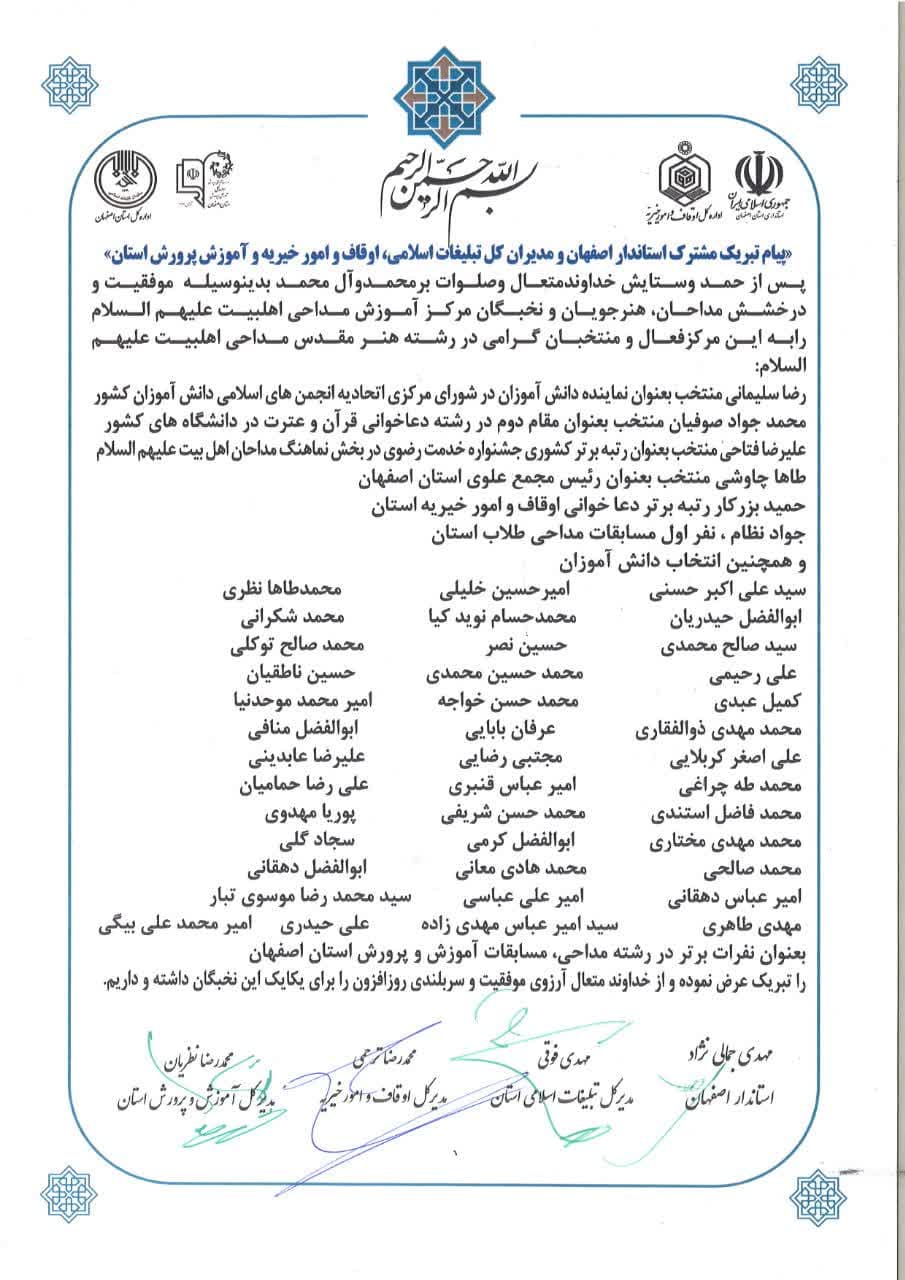 بسم الله الرحمن الرحیم
جمهوری اسلامی ایران
استانداری استان اصفهان
اداره کل اوقاف و امور خیریه
اداره کل استان اصفهان
«پیام تبریک مشترک استاندار اصفهان و مدیران کل تبلیغات اسلامی، اوقاف و امور خیریه و آموزش پرورش استان»
پس از حمد وستایش خداوندمتعال وصلوات برمحمدوآل محمد بدینوسیله موفقیت و
درخشش مداحان، هنرجویان و نخبگان مرکز آموزش مداحی اهلبیت علیهم السلام
رابه این مرکزفعال و منتخبان گرامی در رشته هنر مقدس مداحی اهلبیت علیهم
السلام:
رضا سلیمانی منتخب بعنوان نماینده دانش آموزان در شورای مرکزی اتحادیه انجمن های اسلامی دانش آموزان کشور
محمد جواد صوفیان منتخب بعنوان مقام دوم در رشته دعاخوانی قرآن و عترت در دانشگاه های کشور
علیرضا فتاحی منتخب بعنوان رتبه برتر کشوری جشنواره خدمت رضوی در بخش نماهنگ مداحان اهل بیت علیهم السلام
طاها چاوشی منتخب بعنوان رئیس مجمع علوی استان اصفهان
حمید بزرکار رتبه برتر دعا خوانی اوقاف و امور خیریه استان
جواد نظام ، نفر اول مسابقات مداحی طلاب استان
و همچنین انتخاب دانش آموزان
سید علی اکبر حسنی امیرحسین خلیلی محمدطاها نظری
ابوالفضل حیدریان محمدحسام نوید کیا محمد شکرانی
سید صالح محمدی حسین نصر محمد صالح توکلی
علی رحیمی محمد حسین محمدی حسین ناطقیان
کمیل عبدی محمد حسن خواجه امیر محمد موحدنیا
محمد مهدی ذوالفقاری عرفان بابایی ابوالفضل منافی
علی اصغر کربلایی مجتبی رضایی علیرضا عابدینی
محمد طه چراغی امیر عباس قنبری علی رضا حمامیان
محمد فاضل استندی محمد حسن شریفی پوریا مهدوی
محمد مهدی مختاری ابوالفضل کرمی سجاد گلی
محمد صالحی محمد هادی معانی ابوالفضل دهقانی
امیر عباس دهقانی امیر علی عباسی سید محمد رضا موسوی تبار
مهدی طاهری سید امیر عباس مهدی زاده علی حیدری امیر محمد علی بیگی
بعنوان نفرات برتر در رشته مداحی، مسابقات آموزش و پرورش استان اصفهان
را تبریک عرض نموده و از خداوند متعال آرزوی موفقیت و سربلندی روزافزون را برای یکایک این نخبگان داشته و داریم.
مهدی جمالی نژاد مهدی فوقی محمدرضا ترحمی محمدرضا نظریان
استاندار اصفهان مدیرکل تبلیغات اسلامی استان مدیرکل اوقاف و امور خیریه مدیرکل آموزش و پرورش استان
۱